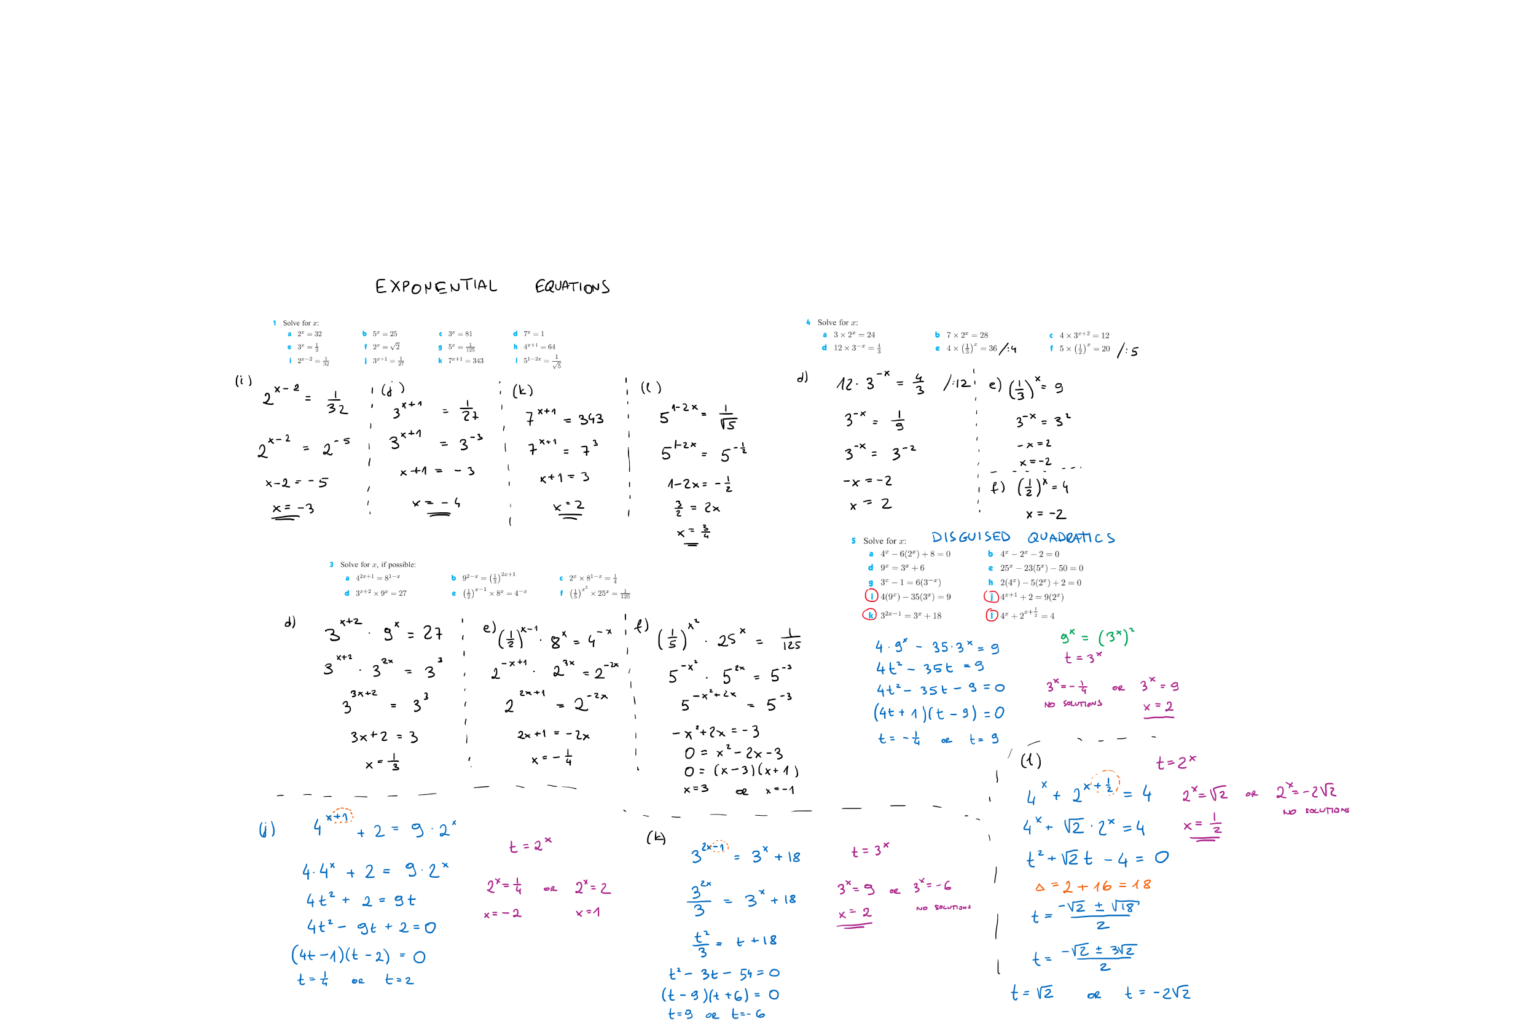 EXPONENTIAL EQUATIONS
1 Solve for x:
a 2^x = 32 b 5^x = 25 c 3^x = 81 d 7^x = 1
e 3^x = 1/3 f 2^x = √2 g 5^x = 1/125 h 4^(x+1) = 64
i 2^(x−2) = 1/32 j 3^(x+1) = 1/27 k 7^(x+1) = 343 l 5^(1−2x) = 1/√5
(i)
2^(x−2) = 1/32
2^(x−2) = 2^(−5)
x−2 = −5
x = −3
(j)
3^(x+1) = 1/27
3^(x+1) = 3^(−3)
x+1 = −3
x = −4
(k)
7^(x+1) = 343
7^(x+1) = 7^3
x+1 = 3
x = 2
(l)
5^(1−2x) = 1/√5
5^(1−2x) = 5^(−1/2)
1−2x = −1/2
3/2 = 2x
x = 3/4
4 Solve for x:
a 3 × 2^x = 24 b 7 × 2^x = 28 c 4 × 3^(x+2) = 12
d 12 × 3^(−x) = 4/3 e 4 × (1/3)^x = 36 /:4 f 5 × (1/2)^x = 20 /:5
d)
12 · 3^(−x) = 4/3 /:12
3^(−x) = 1/9
3^(−x) = 3^(−2)
−x = −2
x = 2
e) (1/3)^x = 9
3^(−x) = 3^2
−x = 2
x = −2
f) (1/2)^x = 4
x = −2
3 Solve for x, if possible:
a 4^(2x+1) = 8^(1−x) b 9^(2−x) = (1/3)^(2x+1) c 2^x × 8^(1−x) = 1/4
d 3^(x+2) × 9^x = 27 e (1/2)^(x−1) × 8^x = 4^(−x) f (1/5)^(x^2) × 25^x = 1/125
d)
3^(x+2) · 9^x = 27
3^(x+2) · 3^(2x) = 3^3
3^(3x+2) = 3^3
3x+2 = 3
x = 1/3
e) (1/2)^(x−1) · 8^x = 4^(−x)
2^(−x+1) · 2^(3x) = 2^(−2x)
2^(2x+1) = 2^(−2x)
2x+1 = −2x
x = −1/4
f) (1/5)^(x^2) · 25^x = 1/125
5^(−x^2) · 5^(2x) = 5^(−3)
5^(−x^2+2x) = 5^(−3)
−x^2+2x = −3
0 = x^2−2x−3
0 = (x−3)(x+1)
x=3 or x=−1
5 Solve for x: DISGUISED QUADRATICS
a 4^x − 6(2^x) + 8 = 0 b 4^x − 2^x − 2 = 0
d 9^x = 3^x + 6 e 25^x − 23(5^x) − 50 = 0
g 3^x − 1 = 6(3^(−x)) h 2(4^x) − 5(2^x) + 2 = 0
i 4(9^x) − 35(3^x) = 9 j 4^(x+1) + 2 = 9(2^x)
k 3^(2x−1) = 3^x + 18 l 4^x + 2^(x+1/2) = 4
4·9^x − 35·3^x = 9
4t^2 − 35t = 9
4t^2 − 35t − 9 = 0
(4t+1)(t−9) = 0
t = −1/4 or t = 9
9^x = (3^x)^2
t = 3^x
3^x = −1/4 or 3^x = 9
NO SOLUTIONS x = 2
(j)
4^(x+1) + 2 = 9·2^x
4·4^x + 2 = 9·2^x
4t^2 + 2 = 9t
4t^2 − 9t + 2 = 0
(4t−1)(t−2) = 0
t = 1/4 or t = 2
t = 2^x
2^x = 1/4 or 2^x = 2
x = −2 x = 1
(k)
3^(2x−1) = 3^x + 18
3^(2x)/3 = 3^x + 18
t^2/3 = t + 18
t^2 − 3t − 54 = 0
(t−9)(t+6) = 0
t=9 or t=−6
t = 3^x
3^x = 9 or 3^x = −6
x = 2 NO SOLUTIONS
(l)
4^x + 2^(x+1/2) = 4
4^x + √2·2^x = 4
t^2 + √2 t − 4 = 0
Δ = 2 + 16 = 18
t = (−√2 ± √18)/2
t = (−√2 ± 3√2)/2
t = √2 or t = −2√2
t = 2^x
2^x = √2 or 2^x = −2√2
x = 1/2 NO SOLUTIONS